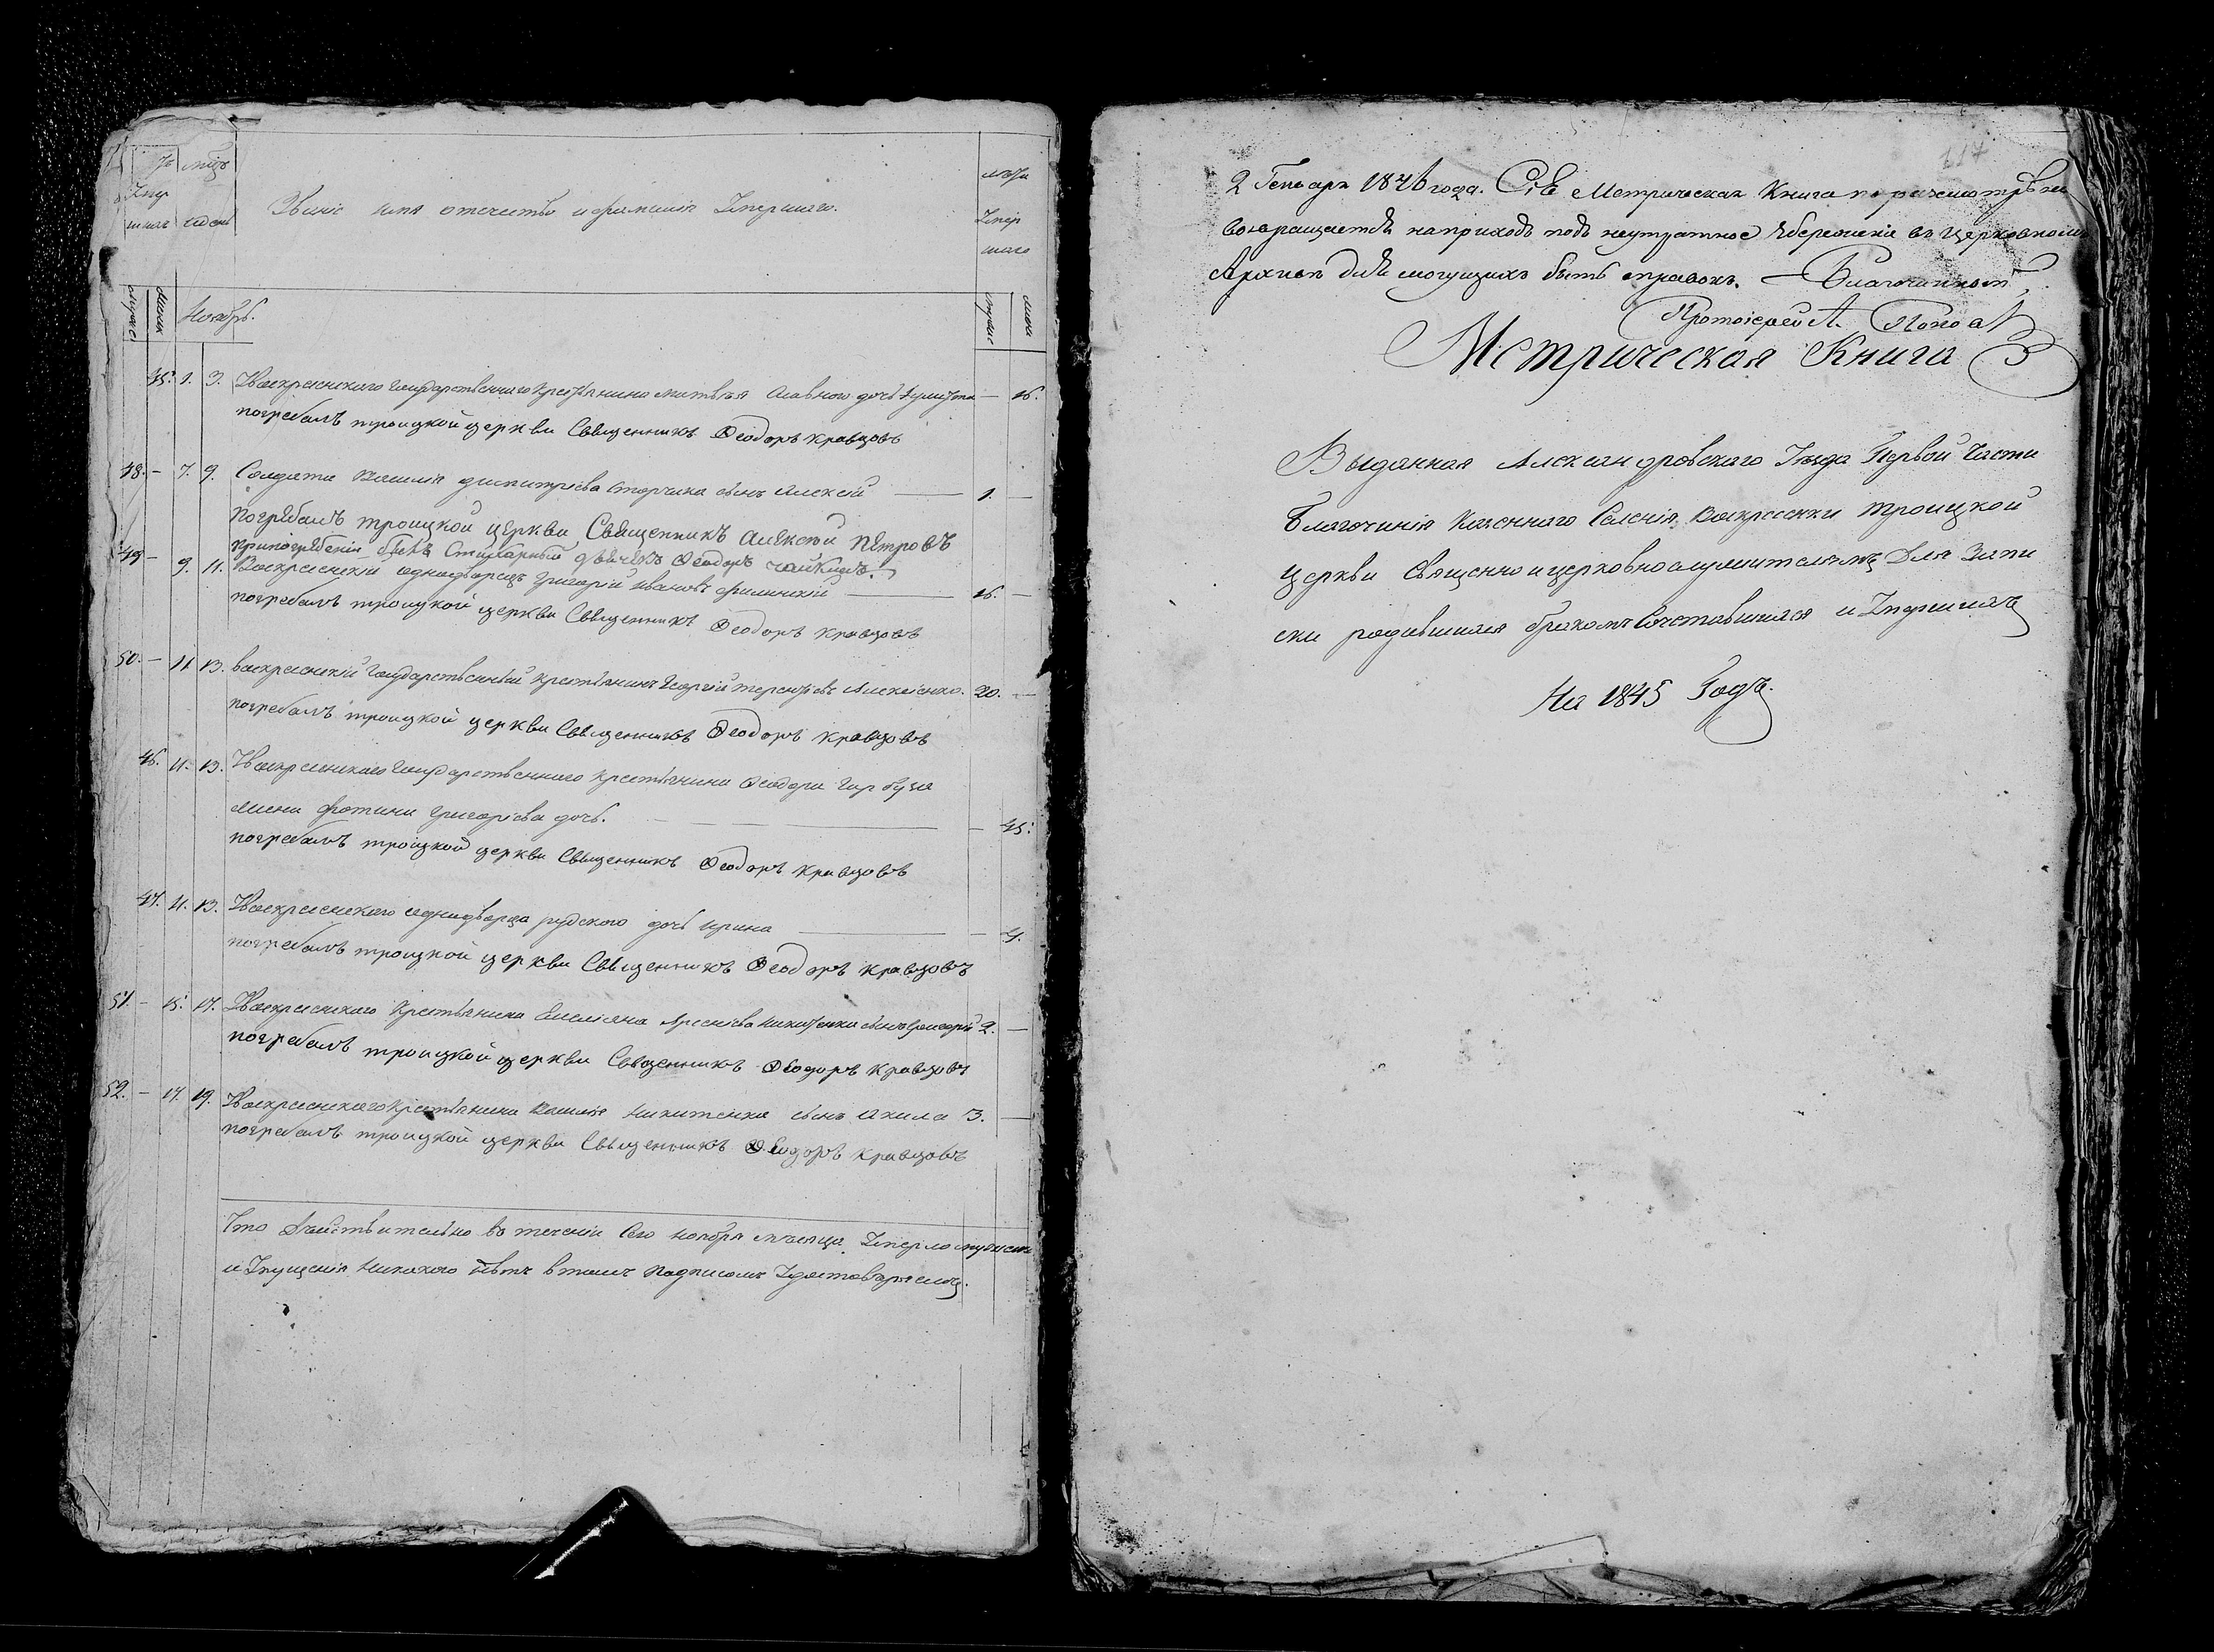 мѣсяцъ
Умер
шихъ и день
Званіе имя отечество и фамилія Умершаго.
Умер
шаго
Ноябрь.
45. 1. 3. Воскресенского Государственного крестьянина дочь — 16.
погребалъ троицкой церкви Священникъ Ѳеодоръ Кравцовъ
48. — 7. 9. Солдата Василія Димитріева сынъ Алексѣй — 1. —
погребалъ троицкой церкви Священникъ Алексѣй Петровъ
припогребеніи былъ Ѳеодоръ
49 — 9. 11. Воскресенскій однодворецъ Григорій Ивановъ — 16. —
погребалъ троицкой церкви Священникъ Ѳеодоръ Кравцовъ
50. — 11 13. воскресенскій Государственный крестьянинъ Георгій терентіевъ Алексѣенко. 20. —
погребалъ троицкой церкви Священникъ Ѳеодоръ Кравцовъ
46. 11. 13. Воскресенского Государственного крестьянина Ѳеодора Гарбуза
жена фотина Григоріева дочь. — 45.
погребалъ троицкой церкви Священникъ Ѳеодоръ Кравцовъ
47. 11. 13. Воскресенского однодворца рудского дочь Ирина — 4.
погребалъ троицкой церкви Священникъ Ѳеодоръ Кравцовъ
51. — 15. 17. Воскресенского Крестьянина Емеліяна Никитенка сынъ Григорій 2. —
погребалъ троицкой церкви Священникъ Ѳеодоръ Кравцовъ
52. — 17. 19. Воскресенского крестьянина Василія Никитенка сынъ Акила 3. —
погребалъ троицкой церкви Священникъ Ѳеодоръ Кравцовъ
Что дѣйствительно въ теченіи Сего ноября мѣсяца Умерло
и Упущенія никакого нѣтъ втомъ подписомъ Удостовѣряемъ.
117
2 Генваря 1846 года. Сія Метрическая Книга по разсмотрѣніи
возвращается наприходъ подъ неутратное Збереженіе въ Церковномъ
Архивѣ для могущихъ быть справокъ. — Благочинный
Протоіерей А. Поповъ
Метрическая Книга
Выданная Александровского Уѣзда Первой Части
Благочинія Казенного Селенія Воскресенки Троицкой
Церкви Священно и церковнослужителямъ Для Запи
ски родившихся бракомъ Сочетавшихся и Умершихъ
На 1845 Годъ.